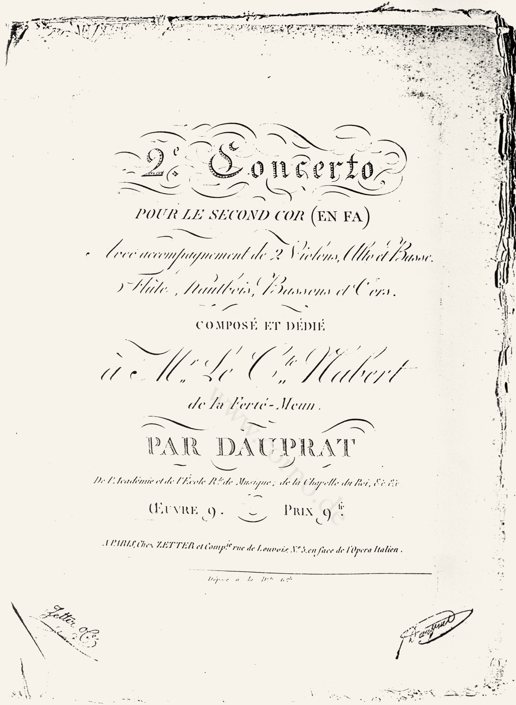 2.e Concerto
POUR LE SECOND COR (EN FA)
Avec accompagnement de 2 Violons, Alto et Basse.
Flûte, Hautbois, Bassons et Cors.
COMPOSÉ ET DÉDIÉ
à M.r Le C.te Hubert
de la Ferté-Meun.
PAR DAUPRAT
De l'Académie et de l'École R.le de Musique; de la Chapelle du Roi, &c. &c.
ŒUVRE 9. PRIX 9 fr.
A PARIS, Chez ZETTER et Comp.ie rue de Louvois, N.o 5, en face de l'Opera Italien.
Déposé à la
Zetter
Dauprat